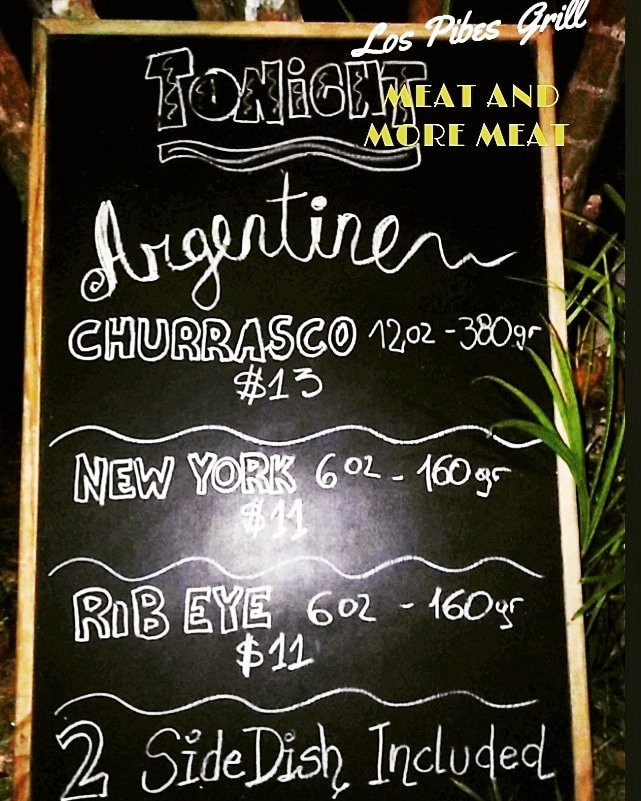 Los Pibes Grill
MEAT AND
MORE MEAT
TONIGHT
Argentine
CHURRASCO 12oz - 380gr
$13
NEW YORK 6oz - 160gr
$11
RIB EYE 6oz - 160gr
$11
2 Side Dish Included